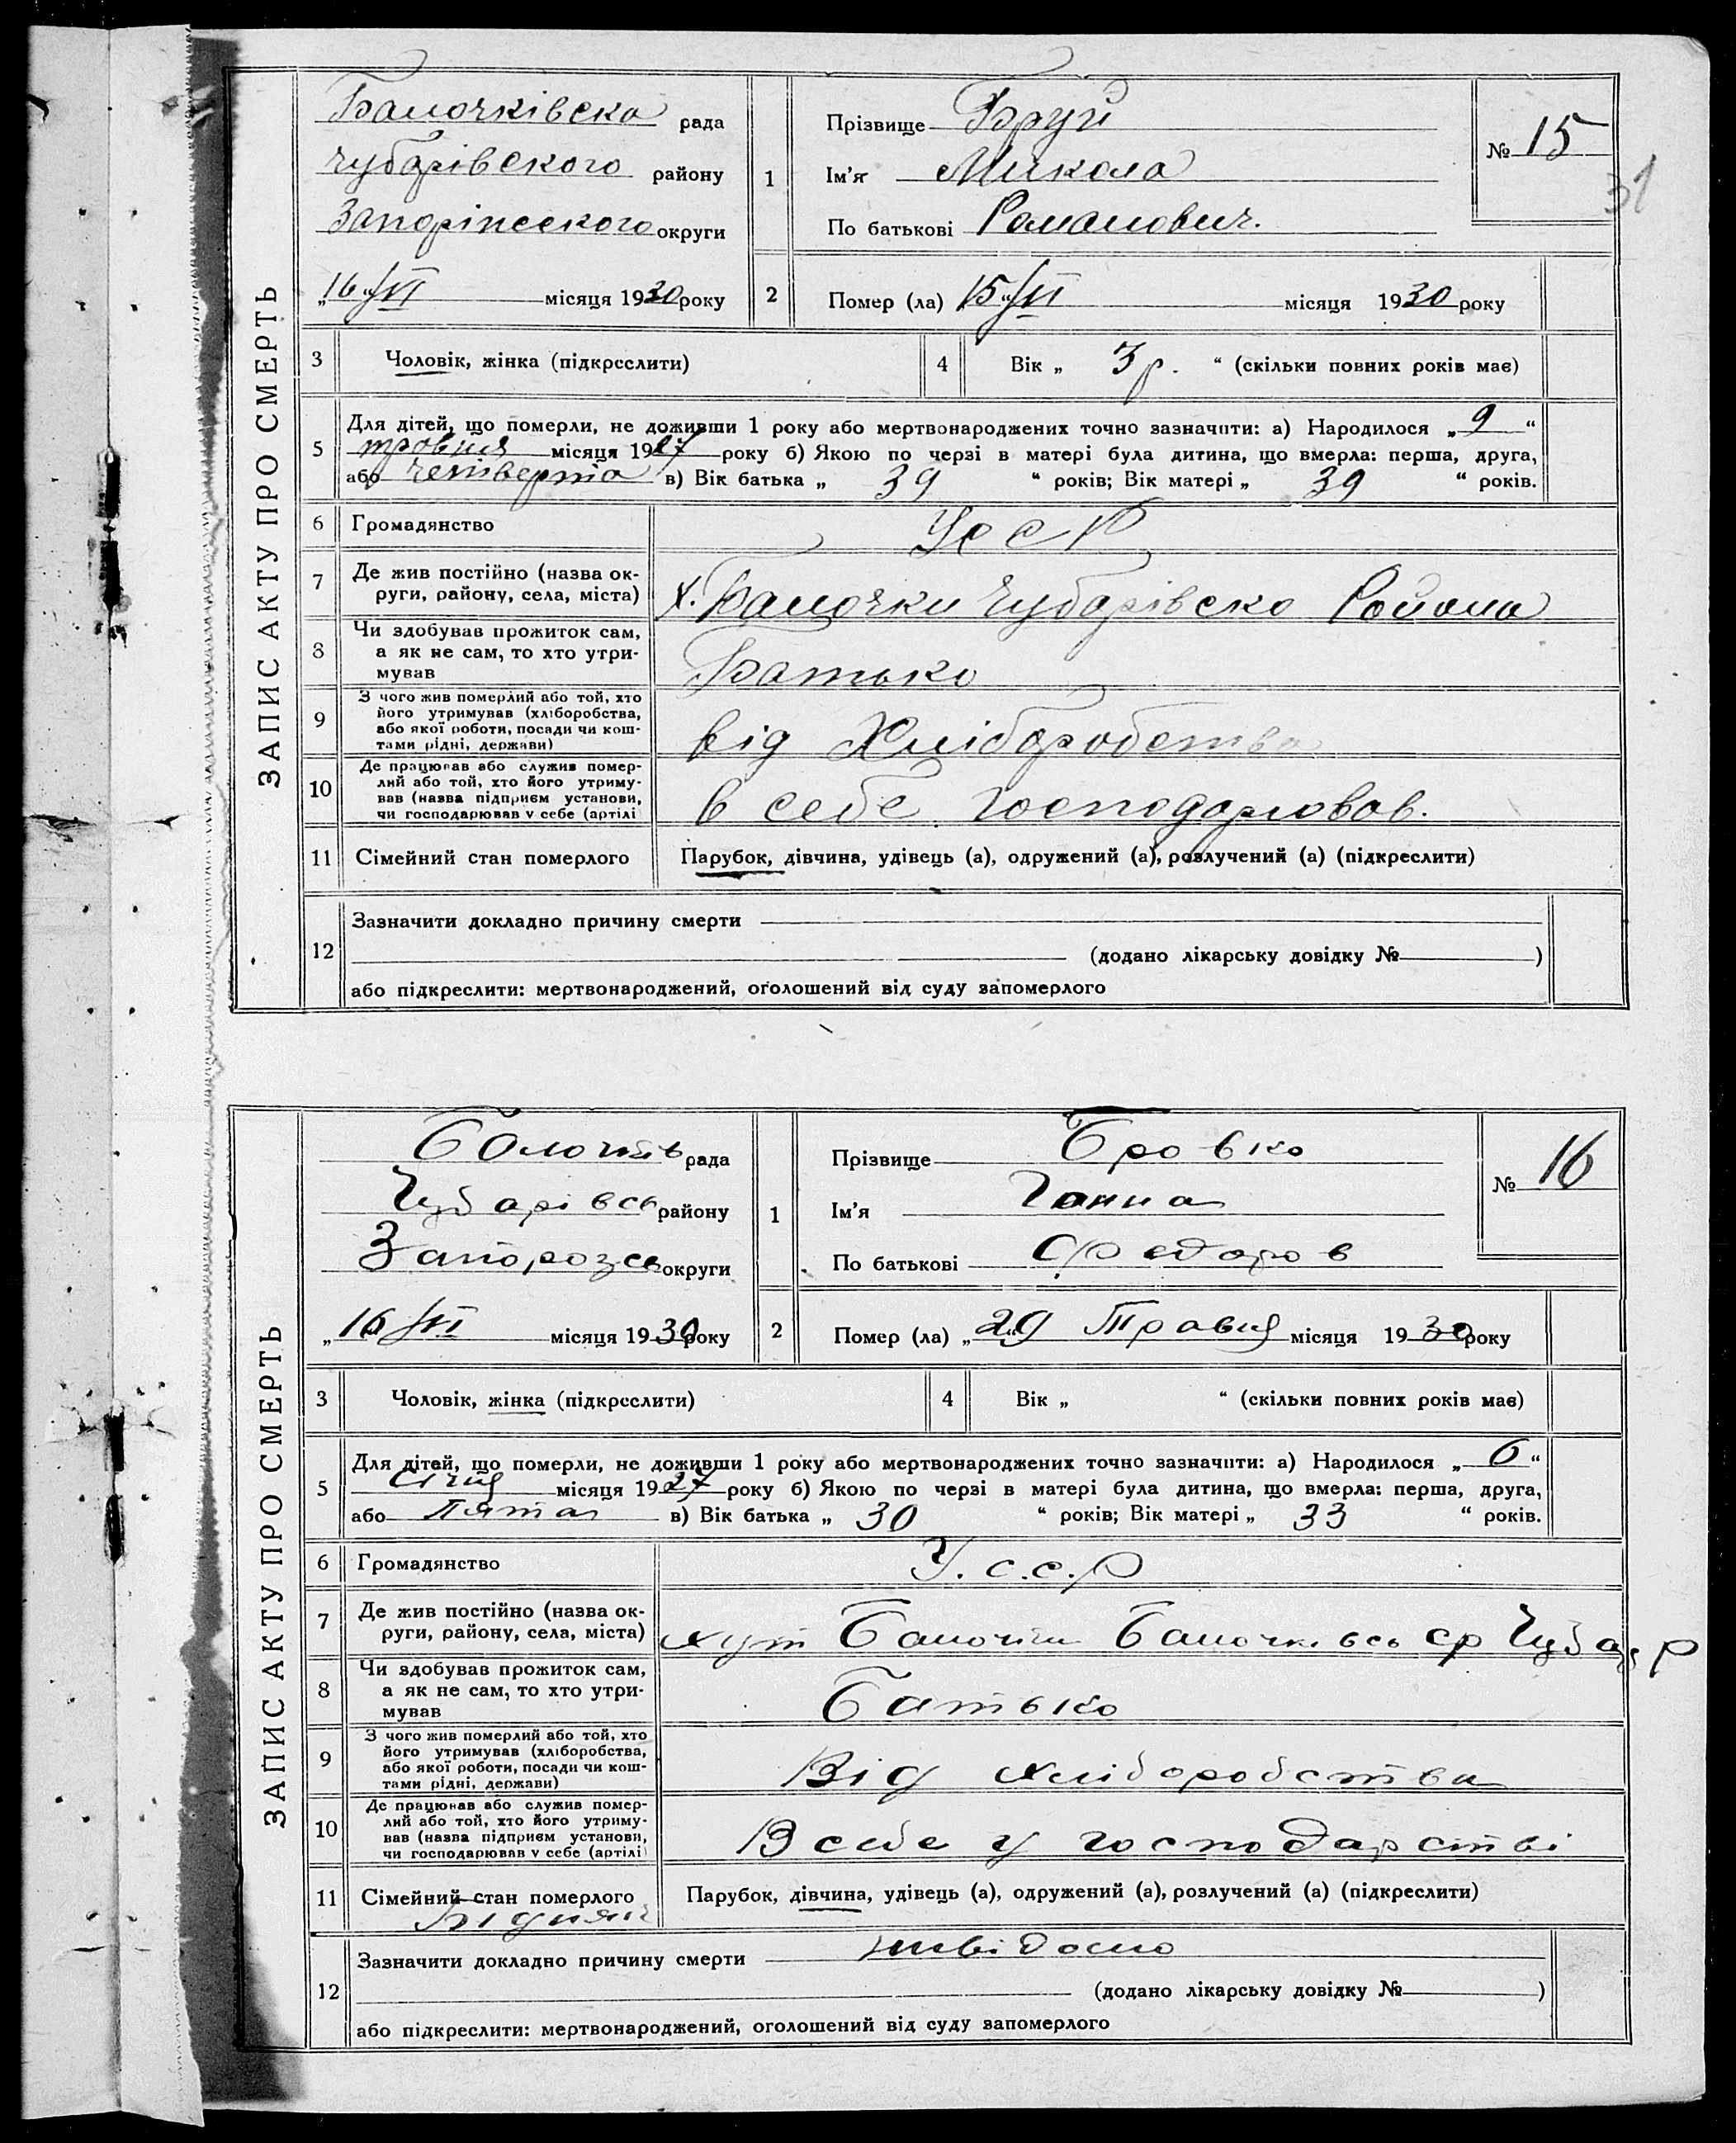 31
ЗАПИС АКТУ ПРО СМЕРТЬ
Балочківська рада
Чубарівского району
Запоріпсского округи
„16“/VI місяця 1930 року
1
Прізвище Бруй
Ім'я Микола
По батькові Романович.
№ 15
2
Помер (ла) 15“/VI місяця 1930 року
3 Чоловік, жінка (підкреслити)
4 Вік „ 3 р. “ (скільки повних років має)
5 Для дітей, що померли, не доживши 1 року або мертвонароджених точно зазначити: а) Народилося „9“
травня місяця 1927 року б) Якою по черзі в матері була дитина, що вмерла: перша, друга,
або четверта в) Вік батька „ 39 “ років; Вік матері „ 39 “ років.
6 Громадянство УССР
7 Де жив постійно (назва округи, району, села, міста) х. Балочки Чубарівско Района
8 Чи здобував прожиток сам, а як не сам, то хто утримував Батько
9 З чого жив померлий або той, хто його утримував (хліборобства, або якої роботи, посади чи коштами рідні, держави) від Хліборобства
10 Де працював або служив померлий або той, хто його утримував (назва підприєм установи, чи господарював у себе (артілі в себе господарював.
11 Сімейний стан померлого Парубок, дівчина, удівець (а), одружений (а), розлучений (а) (підкреслити)
12 Зазначити докладно причину смерти
(додано лікарську довідку № )
або підкреслити: мертвонароджений, оголошений від суду запомерлого
ЗАПИС АКТУ ПРО СМЕРТЬ
рада
Чубарівсь району
Запорозсь округи
„16“/VI місяця 1930 року
1
Прізвище Бровко
Ім'я Ганна
По батькові Федоров
№ 16
2
Помер (ла) „29 Травня місяця 1930 року
3 Чоловік, жінка (підкреслити)
4 Вік „ “ (скільки повних років має)
5 Для дітей, що померли, не доживши 1 року або мертвонароджених точно зазначити: а) Народилося „6“
Січня місяця 1927 року б) Якою по черзі в матері була дитина, що вмерла: перша, друга,
або Пята в) Вік батька „ 30 “ років; Вік матері „ 33 “ років.
6 Громадянство У.с.с.р
7 Де жив постійно (назва округи, району, села, міста) хут Балочки Балочківсь ср Чубар р
8 Чи здобував прожиток сам, а як не сам, то хто утримував Батько
9 З чого жив померлий або той, хто його утримував (хліборобства, або якої роботи, посади чи коштами рідні, держави) Від хліборобства
10 Де працював або служив померлий або той, хто його утримував (назва підприєм установи, чи господарював у себе (артілі) В себе у господарстві
11 Сімейний стан померлого Парубок, дівчина, удівець (а), одружений (а), розлучений (а) (підкреслити)
12 Зазначити докладно причину смерти
(додано лікарську довідку № )
або підкреслити: мертвонароджений, оголошений від суду запомерлого